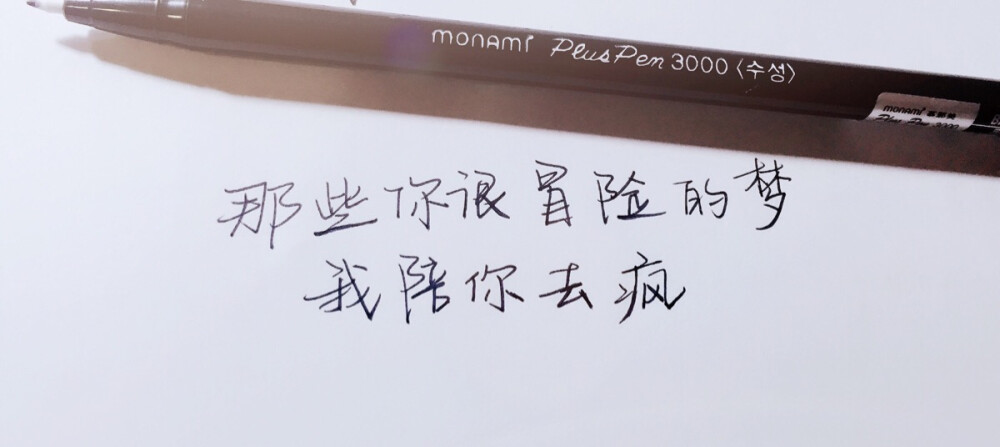 monami Plus Pen 3000 〈수성〉
monami
Plus Pen 3000
那些你很冒险的梦
我陪你去疯